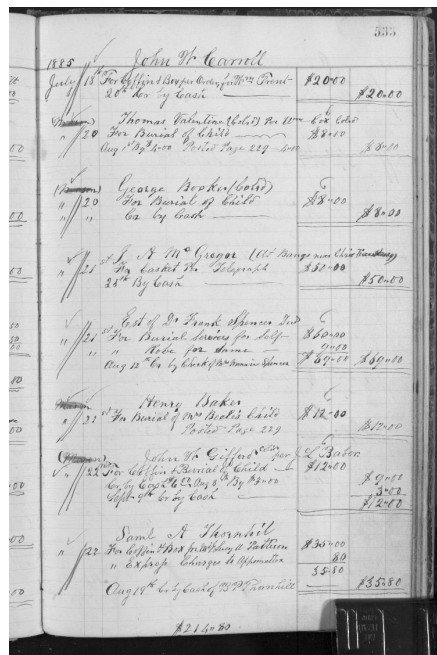 535
1885 John W Carroll
July 18th For Coffin & Box per Order for Wm $20.00
20th Cr by Cash $20.00
Thomas Valentine (Cold) Per Wm Cox Cold
" 20 For Burial of Child $8.00
Aug 1st By $4.00 Posted Page 229 - 4.00 $8.00
George Booker (Cold)
" 20 For Burial of Child $8.00
" " Cr by Cash $8.00
J. A McGregor
" 21st For Casket Per Telegraph $50.00
25th By Cash $50.00
Est of Dr Frank Spencer Decd
" 21st For Burial Services for Self $60.00
" Robe for Same 9.00
Aug 12th Cr by Check of Mrs Spencer $69.00 $69.00
Henry Baker
" 21st For Burial of Mrs Child $12.00
Posted Page 229 $12.00
John W. Gifford Cold per J. L Baber
" 22nd For Coffin & Burial of Child $12.00
Cr by Aug 8th By $3.00 $9.00
Sept 9th Cr by Cash 3.00
$12.00
Saml A Thornhill
" 22 For Coffin & Box for Patterson $35.00
" Express Charges to Appomattox 80
35.80
Aug 19th Cr by Cash of Thornhill $35.80
$214.80